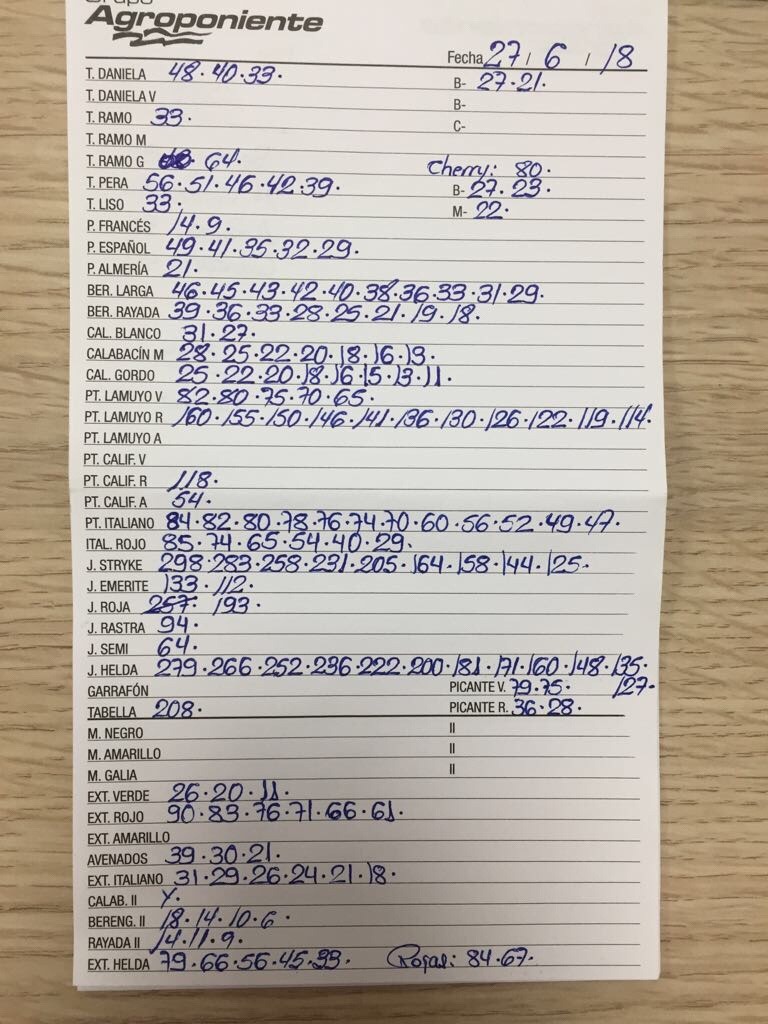 Grupo
Agroponiente
Fecha 27 / 6 / 18
T. DANIELA 48. 40. 33. B- 27. 21.
T. DANELA V B-
T. RAMO 33. C-
T. RAMO M
T. RAMO G 64. Cherry: 80.
T. PERA 56. 51. 46. 42. 39. B- 27. 23.
T. LISO 33. M- 22.
P. FRANCÉS 14. 9.
P. ESPAÑOL 49. 41. 35. 32. 29.
P. ALMERÍA 21.
BER. LARGA 46. 45. 43. 42. 40. 38. 36. 33. 31. 29.
BER. RAYADA 39. 36. 33. 28. 25. 21. 19. 18.
CAL. BLANCO 31. 27.
CALABACÍN M 28. 25. 22. 20. 18. 16. 13.
CAL. GORDO 25. 22. 20. 18. 16. 15. 13. 11.
PT. LAMUYO V 82. 80. 75. 70. 65.
PT. LAMUYO R 160. 155. 150. 146. 141. 136. 130. 126. 122. 119. 114.
PT. LAMUYO A
PT. CALIF. V
PT. CALIF. R 118.
PT. CALIF. A 54.
PT. ITALIANO 84. 82. 80. 78. 76. 74. 70. 60. 56. 52. 49. 47.
ITAL. ROJO 85. 74. 65. 54. 40. 29.
J. STRYKE 298. 283. 258. 231. 205. 164. 158. 144. 125.
J. EMERITE 133. 112.
J. ROJA 257. 193.
J. RASTRA 94.
J. SEMI 64.
J. HELDA 279. 266. 252. 236. 222. 200. 181. 171. 160. 148. 135.
GARRAFÓN PICANTE V. 79. 75. 127.
TABELLA 208. PICANTE R. 36. 28.
M. NEGRO II
M. AMARILLO II
M. GALIA II
EXT. VERDE 26. 20. 11.
EXT. ROJO 90. 83. 76. 71. 66. 61.
EXT. AMARILLO
AVENADOS 39. 30. 21.
EXT. ITALIANO 31. 29. 26. 24. 21. 18.
CALAB. II
BERENG. II 18. 14. 10. 6.
RAYADA II 14. 11. 9.
EXT. HELDA 79. 66. 56. 45. 33. Rojas: 84. 67.